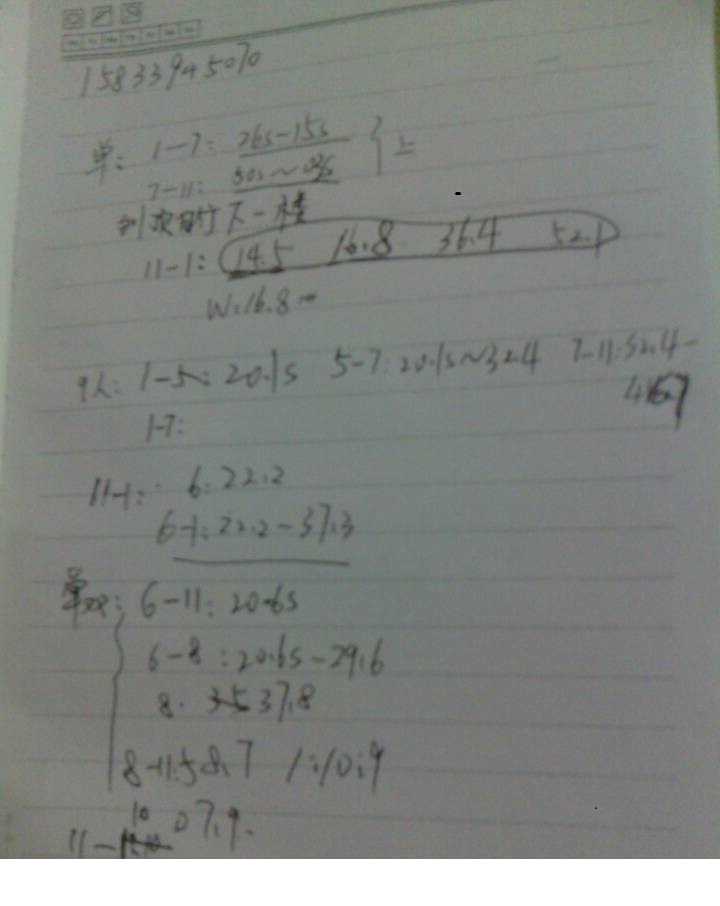 15833945070
单: 1-7: 26s-15s } 上
7-11: 30s~
到次时下一楼
11-1: 14.5 16.8 36.4 52.1
W:16.8
1-5: 20.1s 5-7: 20.1s~32.4 7-11:32.4-
1-7:
11-1: 6:22.2
6-1:22.2-37.3
单双: 6-11: 20.6s
6-8:20.6s-29.6
8. 37.8
8-11:58.7 1:10:9
10 07.9.
11-